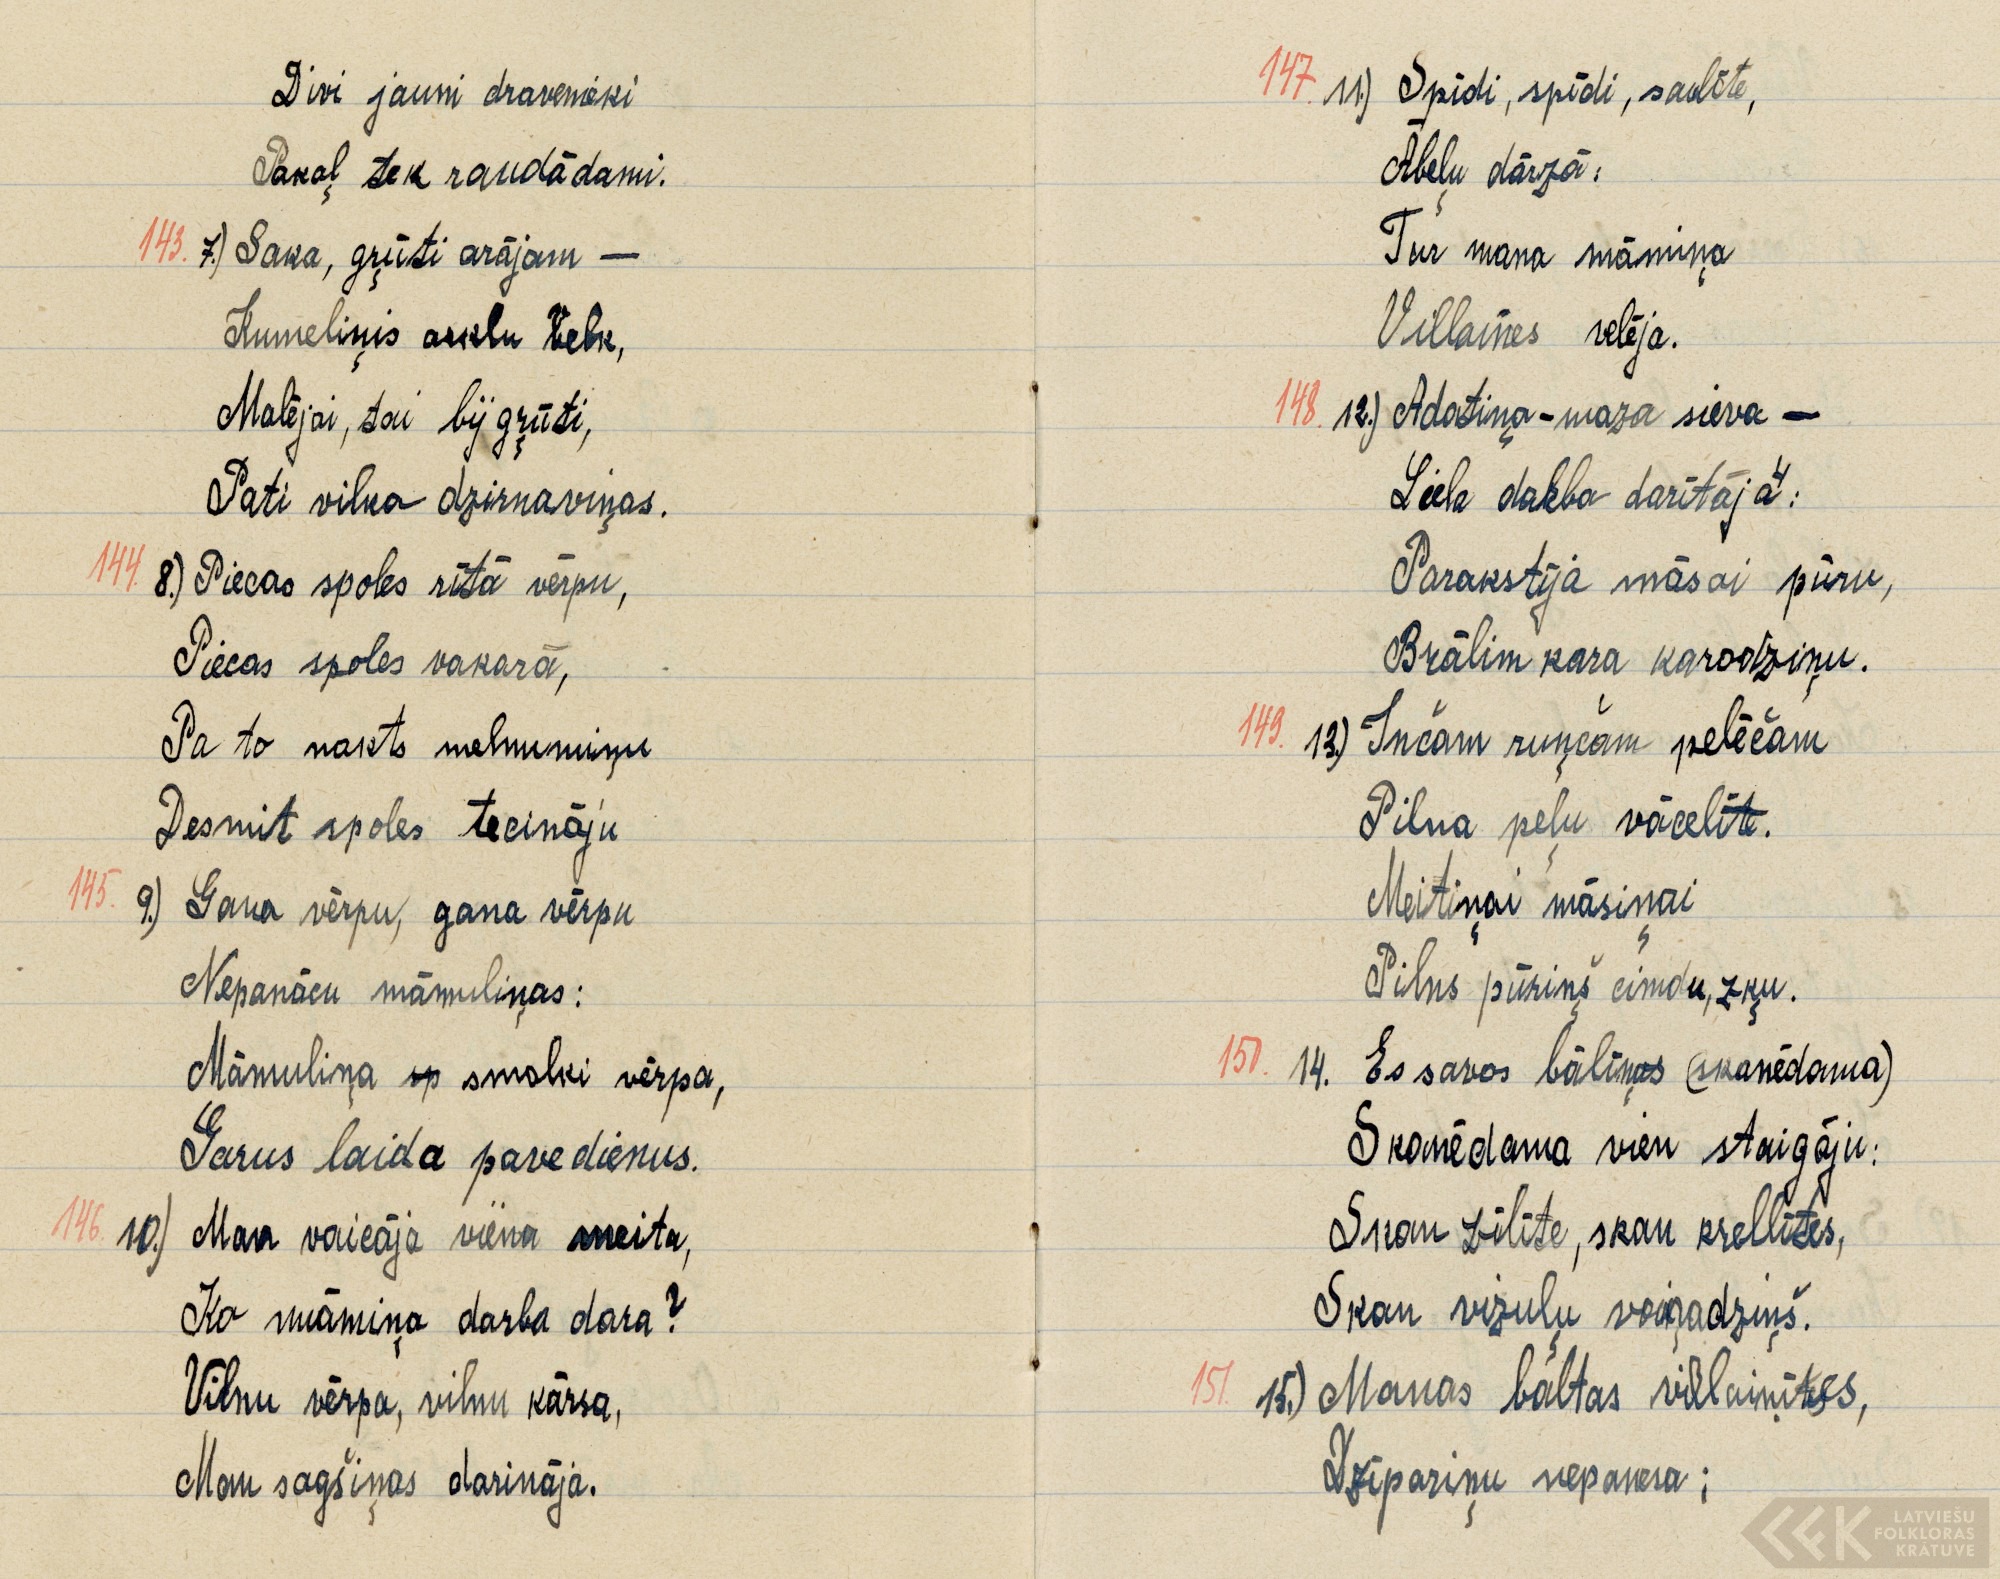 Divi jauni dravenieki
Pakaļ tek raudādami.
143. 7.) Saka, gŗūti arājam —
Kumeliņis arklu velk,
Malējai, tai bij gŗūti,
Pati vilka dzirnaviņas.
144. 8.) Piecas spoles rītā vērpu,
Piecas spoles vakarā,
Pa to nakts melnumiņu
Desmit spoles tecināju
145. 9.) Gana vērpu, gana vērpu
Nepanācu māmuliņas:
Māmuliņa sp smalki vērpa,
Garus laida pavedienus.
146. 10.) Man vaicāja viena meita,
Ko māmiņa darba dara?
Vilnu vērpa, vilnu kārsa,
Man sagšiņas darināja.
147. 11.) Spīdi, spīdi, saulīte,
Ābeļu dārzā:
Tur mana māmiņa
Villaines velēja.
148. 12.) Adatiņa - maza sieva —
Liela darba darītāja:
Parakstīja māsai pūru,
Brālim kara karodziņu.
149. 13.) Inčam ruņčam pelēčam
Pilna peļu vācelīte.
Meitiņai māsiņai
Pilns pūriņš cimdu, zķu.
150. 14. Es savos bāliņos (skanēdama)
Skanēdama vien staigāju:
Skan zīlīte, skan krellītes,
Skan vizuļu vaiņadziņš.
151. 15.) Manas baltas villainītes,
Dzīpariņu nepanesa;
LATVIEŠU
FOLKLORAS
KRĀTUVE